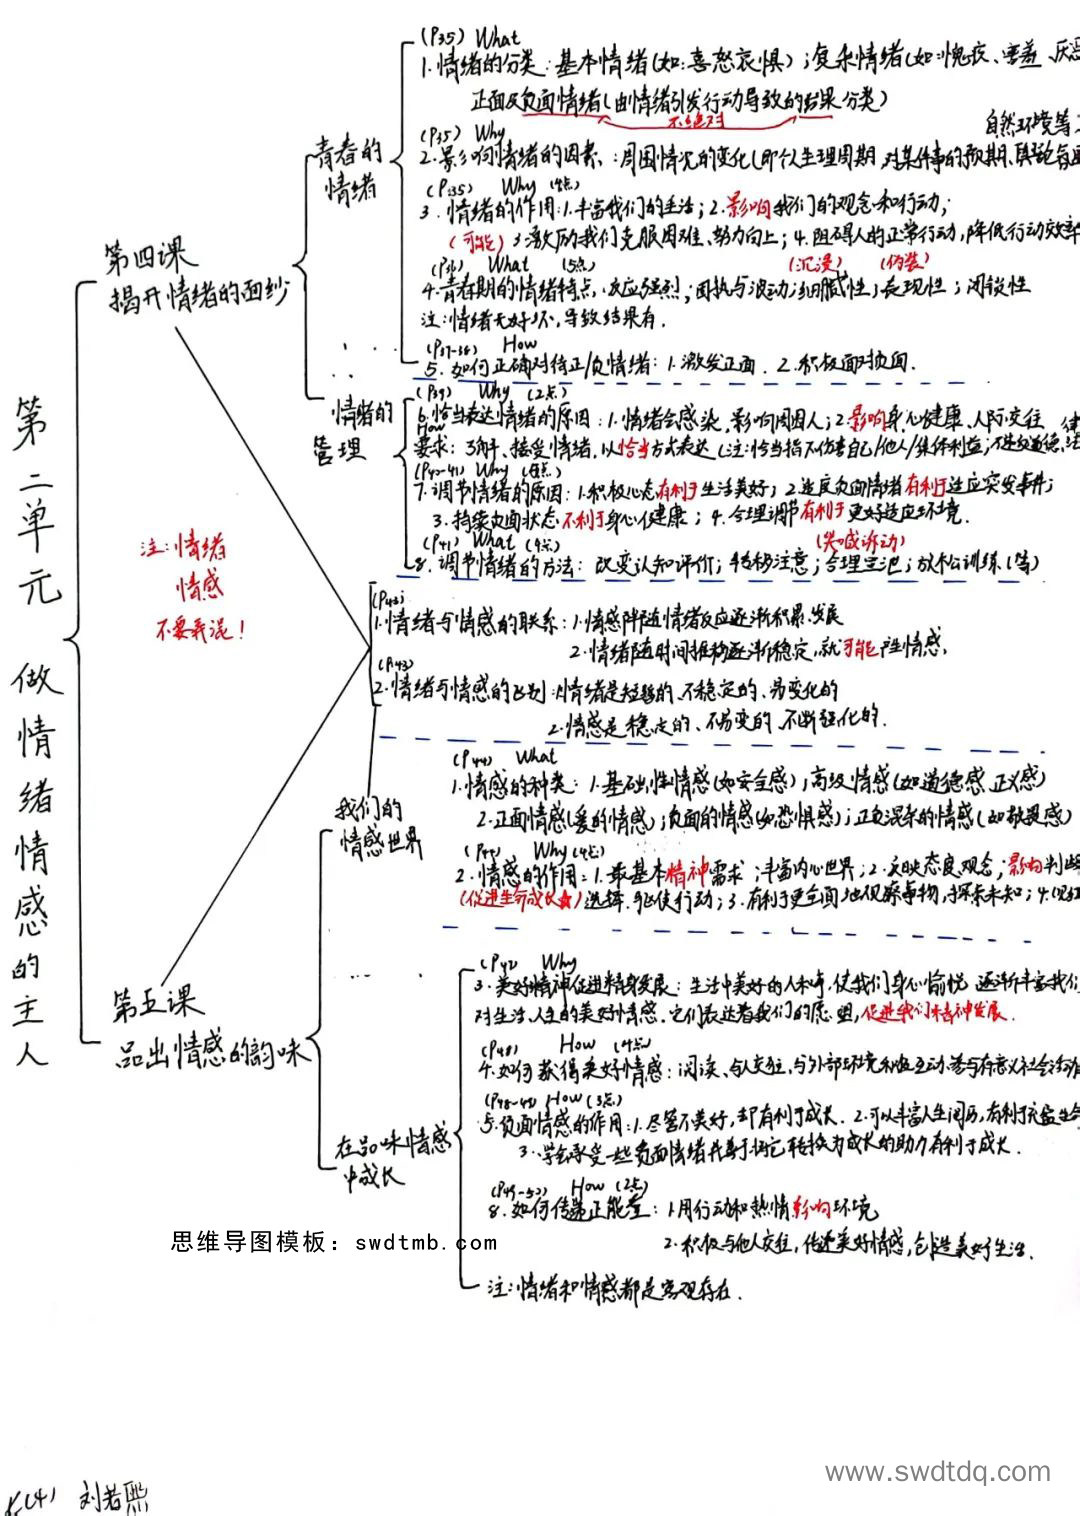 第二单元 做情绪情感的主人
第四课
揭开情绪的面纱
青春的
情绪
(P35) What
1.情绪的分类:基本情绪(如:喜怒哀惧);复杂情绪(如:愧疚、害羞、厌恶
正面及负面情绪(由情绪引发行动导致的结果分类)
不绝对
自然环境等
(P35) Why
2.影响情绪的因素:周围情况的变化(即个人生理周期、对某件事的预期、舆论氛围
(P35) Why (4点)
3.情绪的作用:1.丰富我们的生活;2.影响我们的观念和行动;
(可能) 3.激励我们克服困难、努力向上;4.阻碍人的正常行动,降低行动效率
(P36) What (5点) (沉浸) (伪装)
4.青春期的情绪特点:反应强烈;固执与波动;细腻性;表现性;闭锁性
注:情绪无好坏,导致结果有.
(P37-38) How
5.如何正确对待正/负情绪:1.激发正面. 2.积极面对负面.
情绪的
管理
(P39) Why (2点)
6.恰当表达情绪的原因:1.情绪会感染,影响周围人;2.影响身心健康、人际交往
How
要求:了解、接受情绪,以恰当方式表达(注:恰当指不伤害自己/他人/集体利益;不违反道德、法
(P40-41) Why (4点)
7.调节情绪的原因:1.积极心态有利于生活美好;2.适度负面情绪有利于适应突发事件;
3.持续负面状态不利于身心健康;4.合理调节有利于更好适应环境.
(P41) What (4点) (哭喊诉动)
8.调节情绪的方法:改变认知评价;转移注意;合理宣泄;放松训练(等)
注:情绪
情感
不要弄混!
(P43)
1.情绪与情感的联系:1.情感伴随情绪反应逐渐积累、发展
2.情绪随时间推移逐渐稳定,就可能产生情感,
(P43)
2.情绪与情感的区别:1.情绪是短暂的、不稳定的、易变化的
2.情感是稳定的、不易变的、不断强化的.
第五课
品出情感的韵味
我们的
情感世界
(P44) What
1.情感的种类:1.基础性情感(如安全感);高级情感(如道德感、正义感)
2.正面情感(爱的情感);负面的情感(如恐惧感);正负混杂的情感(如敬畏感)
(P45) Why (4点)
2.情感的作用:1.最基本精神需求;丰富内心世界;2.反映态度观念;影响判断
(促进生命成长★)选择、驱使行动;3.有利于更全面地观察事物,探索未知;4.
在品味情感
中成长
(P47) Why
3.美好情神促进精神发展:生活中美好的人和事,使我们身心愉悦,逐渐丰富我们
对生活、人生的美好情感.它们表达着我们的愿望,促进我们精神发展.
(P48) How (4点)
4.如何获得美好情感:阅读、与人交往、与外部环境积极互动、参与有意义社会活动
(P48-49) How (3点)
5.负面情感的作用:1.尽管不美好,却有利于成长. 2.可以丰富人生阅历,有利于充盈生命
3.学会承受一些负面情绪并善于将它转换为成长的助力有利于成长.
(P49-50) How (2点)
8.如何传递正能量:1.用行动和热情影响环境
2.积极与他人交往,传递美好情感,创造美好生活.
注:情绪和情感都是客观存在.
思维导图模板:swdtmb.com
www.swdtdq.com
(4) 刘若熙